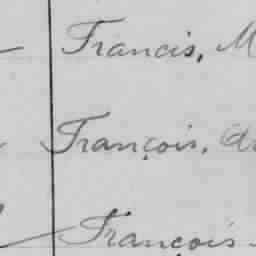 Francis, M
François, d
François